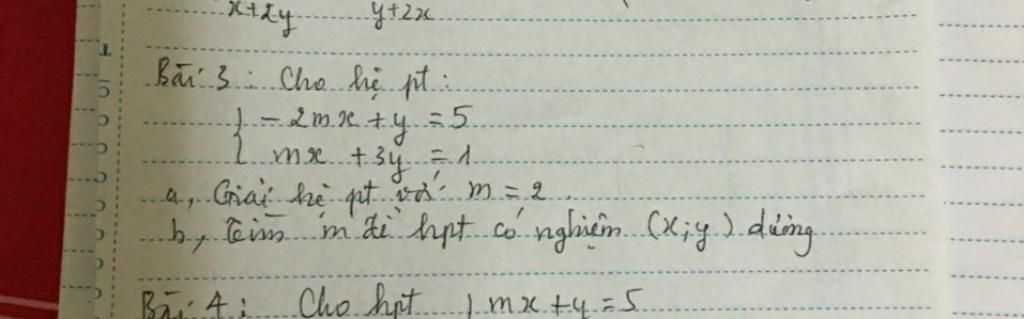 x+2y y+2x
Bài 3: Cho hệ pt:
{ -2mx + y = 5
mx + 3y = 1
a, Giải hệ pt với m = 2.
b, Tìm m để hpt có nghiệm (x;y) dương
Bài 4: Cho hpt { mx + y = 5